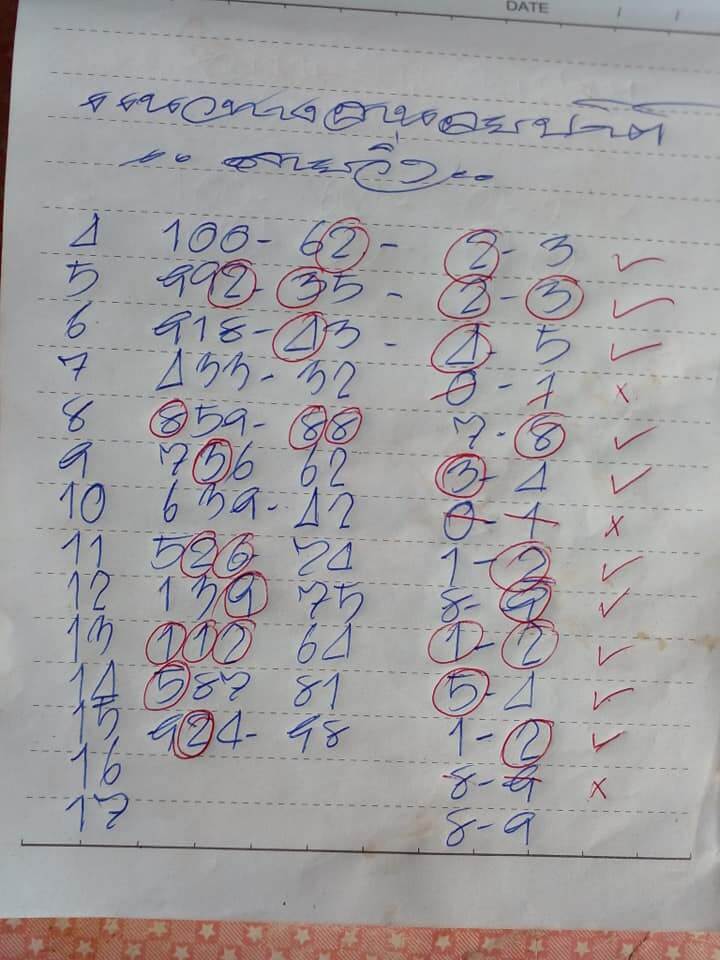 DATE / /
4 100 - 62 - 2 - 3 ✓
5 992 - 35 - 2 - 3 ✓
6 918 - 43 - 4 - 5 ✓
7 433 - 32 0 - 1 x
8 859 - 88 7 - 8 ✓
9 756 62 3 - 4 ✓
10 639 - 42 0 - 1 x
11 526 74 1 - 2 ✓
12 139 75 8 - 9 ✓
13 112 64 1 - 2 ✓
14 587 81 5 - 4 ✓
15 924 - 98 1 - 2 ✓
16 8 - 9 x
17 8 - 9